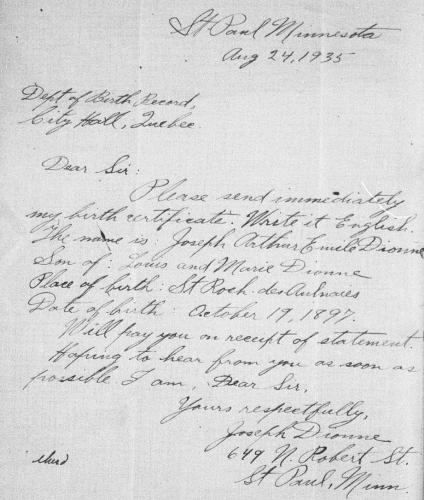 St Paul Minnesota
Aug 24, 1935
Dept of Birth Record,
City Hall, Quebec.
Dear Sir:
Please send immediately
my birth certificate. Write it English.
The name is: Joseph Arthur Emile Dionne
Son of: Louis and Marie Dionne
Place of birth: St Roch des Aulnaies
Date of birth: October 19, 1897.
Will pay you on receipt of statement.
Hoping to hear from you as soon as
possible I am, Dear Sir,
Yours respectfully,
Joseph Dionne
649 N. Robert St.
St Paul, Minn.